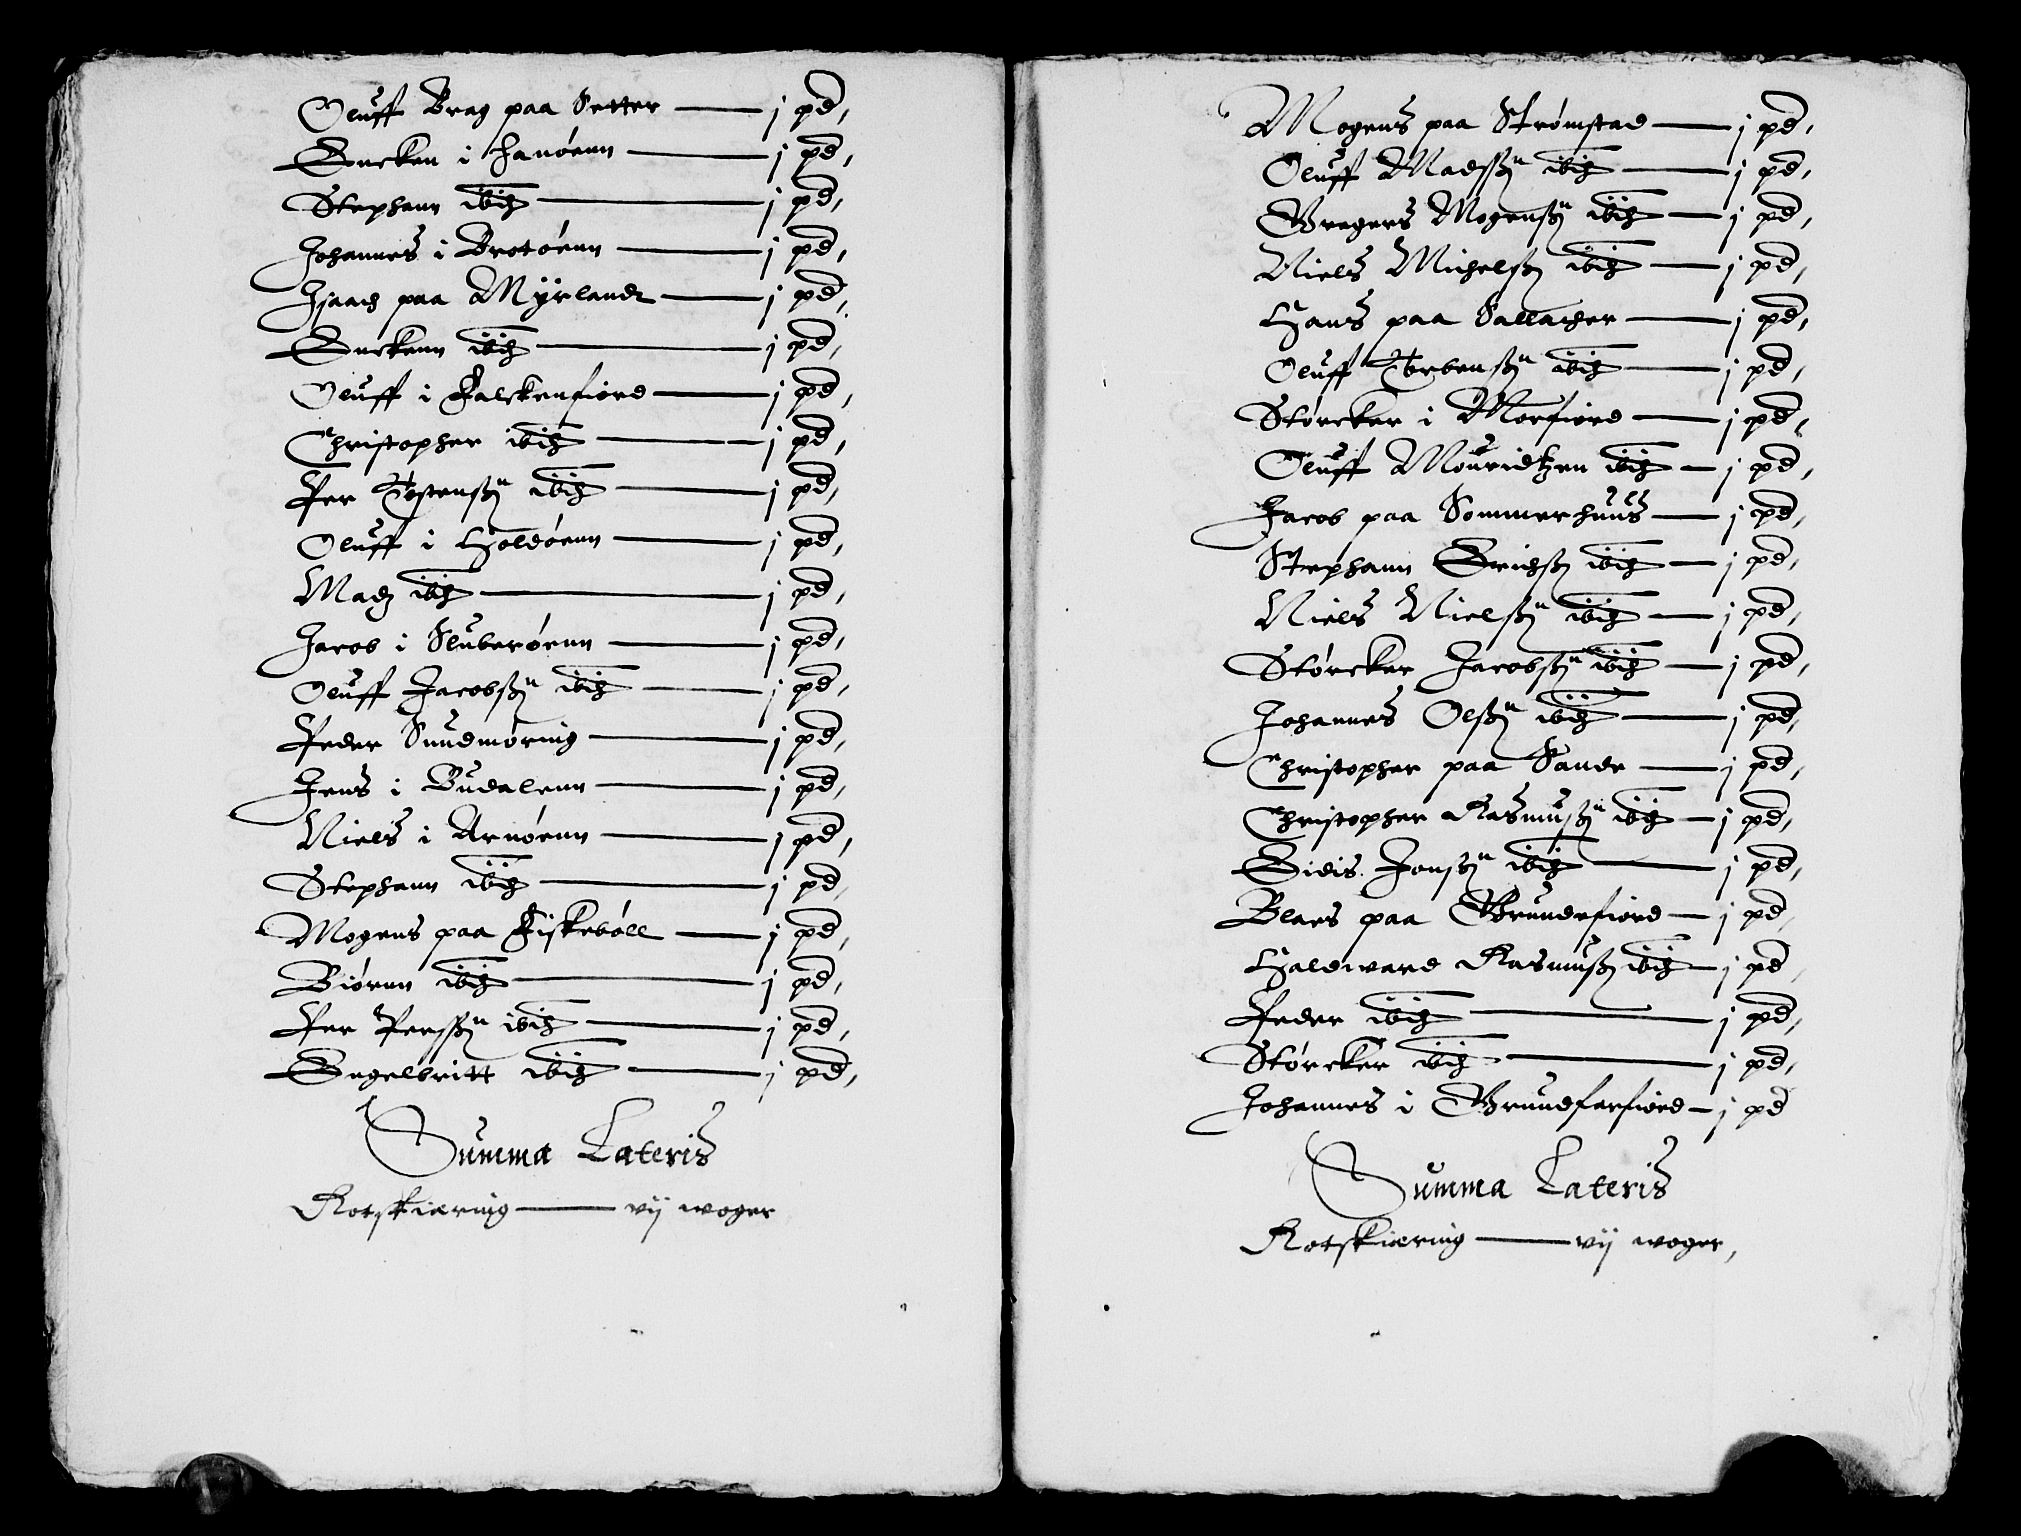 Oluff Brag paa Setter — j pd,
Encken i Janøenn — j pd,
Stephann ibid — j pd,
Johannes i Brotøenn — j pd,
Isaach paa Myrlandt — j pd,
Enckenn ibid — j pd,
Oluff i Falckenfiord — j pd,
Christopher ibid — j pd,
Per Tostensßn ibid — j pd,
Oluff i Holdøenn — j pd,
Madz ibid — j pd,
Jacob i Sluberøenn — j pd,
Oluff Jacobsßn ibid — j pd,
Peder Sundmøring — j pd,
Jens i Budalenn — j pd,
Niels i Arnøenn — j pd,
Stephann ibid — j pd,
Mogens paa Fiskebøll — j pd,
Biørnn ibid — j pd,
Per Persßn ibid — j pd,
Engelbritt ibid — j pd,
Summa Lateris
Rotskiæring — vij woger
Mogens paa Strømstad — j pd,
Oluff Madsßn ibid — j pd,
Gregers Mogensßn ibid — j pd,
Niels Michelsß ibid — j pd,
Hans paa Sallacher — j pd,
Oluff Torbensßn ibid — j pd,
Størcker i Morfiord — j pd,
Oluff Mouridtzen ibid — j pd,
Jacob paa Sommerhuus — j pd,
Stephann Erichsß ibid — j pd,
Niels Nielsßn ibid — j pd,
Størcker Jacobsßn ibid — j pd,
Johannes Olsßn ibid — j pd,
Christopher paa Sande — j pd,
Christopher Rasmusßn ibid — j pd,
Eidis Jonsßn ibid — j pd,
Blaes paa Grundefiord — j pd,
Haldward Rasmusß ibid — j pd,
Peder ibid — j pd,
Størcker ibid — j pd,
Johannes i Grundfarfiord — j pd
Summa Lateris
Rotskiæring — vij woger,